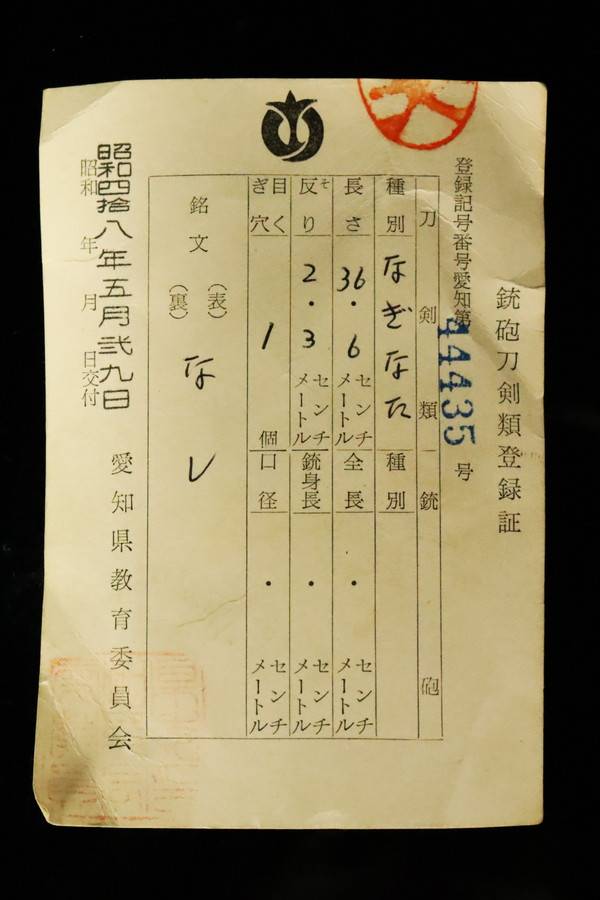 銃砲刀剣類登録証
登録記号番号愛知第44435号
刀剣類
銃砲
種別 なぎなた
種別
長さ 36.6 センチメートル
全長 ・ センチメートル
反り 2.3 センチメートル
銃身長 ・ センチメートル
目くぎ穴 1個
口径 ・ センチメートル
銘文
(表)
(裏)
なし
昭和四拾八年五月弐九日
昭和 年 月 日交付
愛知県教育委員会